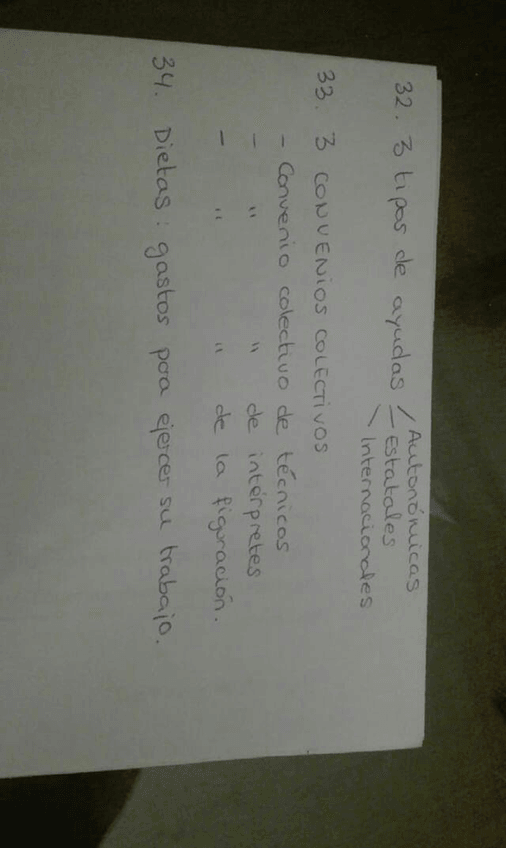 32. 3 tipos de ayudas / Autonómicas
– Estatales
\ Internacionales
33. 3 CONVENIOS COLECTIVOS
- Convenio colectivo de técnicos
- " " de intérpretes
- " " de la figuración.
34. Dietas: gastos para ejercer su trabajo.